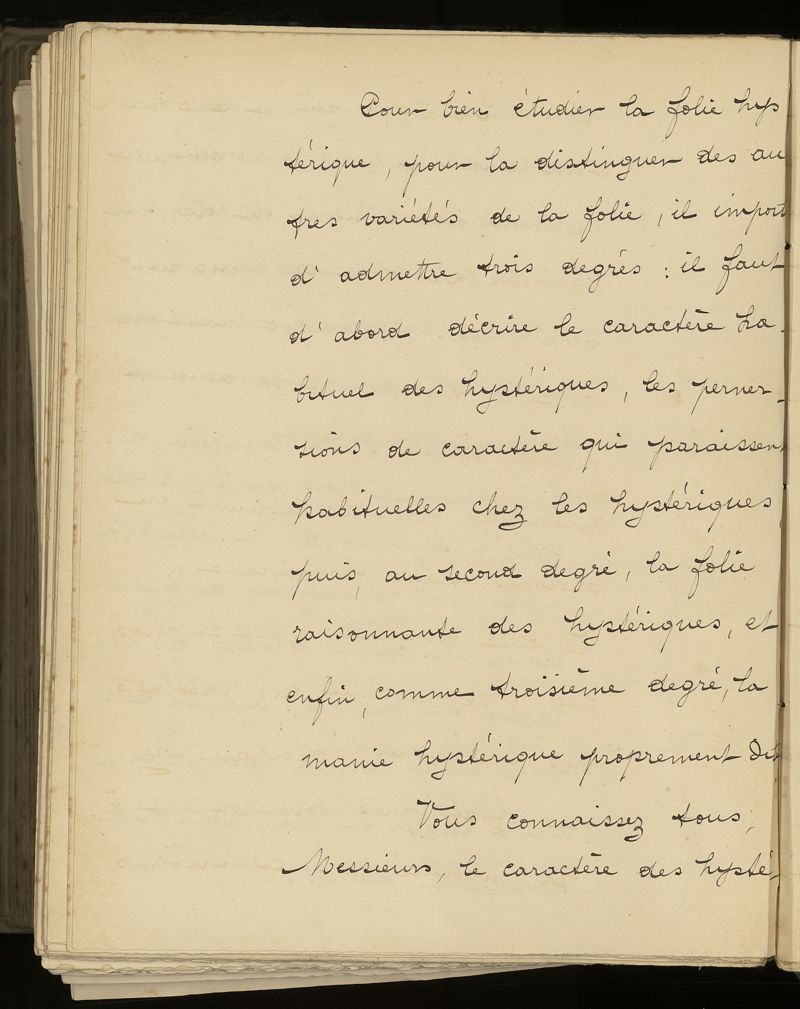 Pour bien étudier la folie hys
térique, pour la distinguer des au
tres variétés de la folie, il import
d'admettre trois degrés : il faut
d'abord décrire le caractère ha-
bituel des hystériques, les perver-
sions de caractère qui paraissent
habituelles chez les hystériques
puis, au second degré, la folie
raisonnante des hystériques, et
enfin, comme troisième degré, la
manie hystérique proprement dit
Vous connaissez tous,
Messieurs, le caractère des hysté-